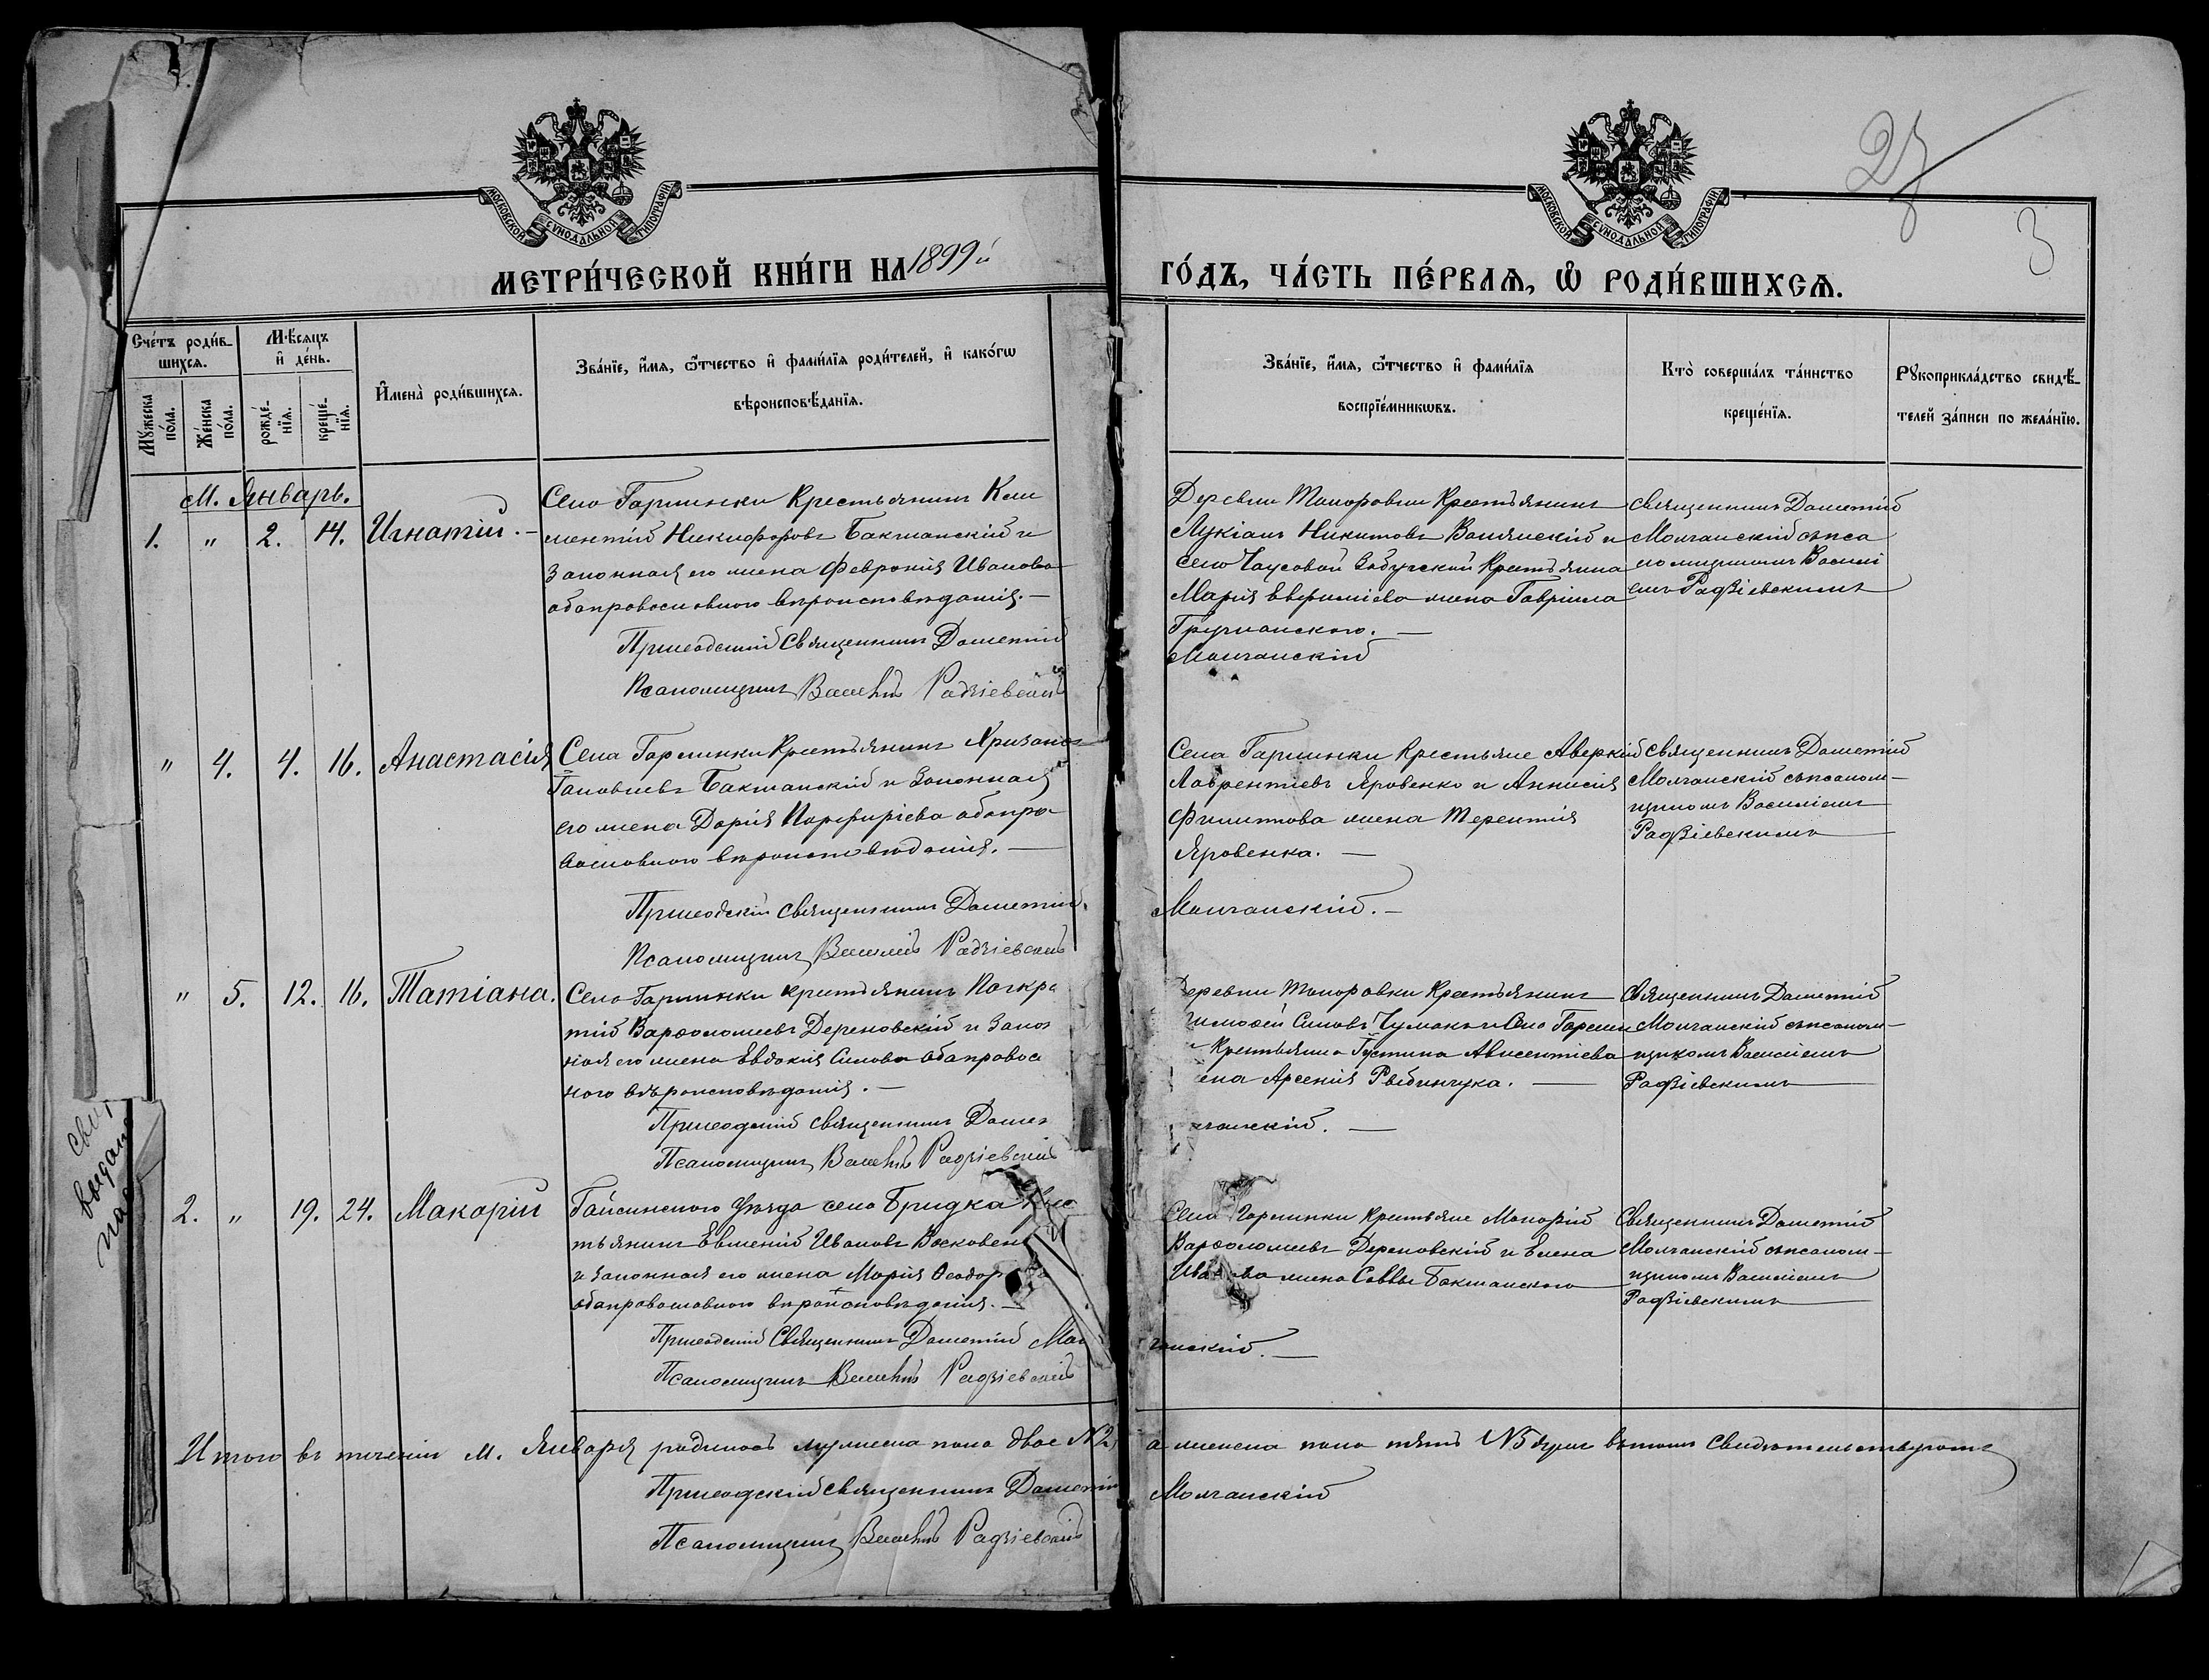 МОСКОВСКОЙ СѴНОДАЛЬНОЙ ТИПОГРАФІИ
МОСКОВСКОЙ СѴНОДАЛЬНОЙ ТИПОГРАФІИ
3
МЕТРИ́ЧЕСКОЙ КНИ́ГИ НА 1899й
ГО́ДЪ, ЧА́СТЬ ПЕ́РВАЯ, Ѡ РОДИ́ВШИХСЯ.
Сче́тъ роди́в-
шихся.
Мѣ́сяцъ
и҆ де́нь.
Мꙋ́жеска по́ла.
Же́нска по́ла.
рожде́-
нїѧ.
креще́-
нїѧ.
И҆мена̀ роди́вшихся.
Зва́нїе, и҆́мѧ, ѻ҆́тчество и҆ фами́лїѧ роди́телей, и҆ како́гѡ
вѣроисповѣ́данїѧ.
Зва́нїе, и҆́мѧ, ѻ҆́тчество и҆ фами́лїѧ
воспрїе́мникѡвъ.
Кто̀ соверша́лъ та́инство
креще́нїѧ.
Рꙋкоприкла́дство свидѣ́-
телей за́писи по жела́нїю.
М. Январь.
1. " 2. 14. Игнатій. –
Села Гарминки Крестьянинъ
Никифоровъ Бакшанскій и
Законная его жена Феврония Иванова
оба православнаго вѣроисповѣданія. –
Приходскій Священникъ Дометій
Псаломщикъ Василій Радзіевскій
Деревни Топоровки Крестьянинъ
Лукіанъ Никитовъ и
села Крестьянка
Марія Евфиміева жена Гавріила
Молчанскій
Священникъ Дометій
Молчанскій съ пса
ломщикомъ Василі
емъ Радзіевскимъ
" 4. 4. 16. Анастасія
Села Гарминки Крестьянинъ
Бакшанскій и Законная
его жена Дарія Порфиріева оба пра
вославнаго вѣроисповѣданія. –
Приходскій Священникъ Дометій
Псаломщикъ Василій Радзіевскій
Села Гарминки Крестьяне Аверкій
Лаврентіевъ Яровенко и Аннисія
Филиппова жена Терентія
Яровенка. –
Молчанскій. –
Священникъ Дометій
Молчанскій съ псалом–
щикомъ Василіемъ
Радзіевскимъ
" 5. 12. 16. Татіана.
Села Гарминки крестьянинъ Панкра
тій Варѳоломеевъ Дереновскій и Закон
ная его жена Евдокія Силова оба правосл
наго вѣроисповѣданія. –
Приходскій священникъ Домет
Псаломщикъ Василій Радзіевскій
Деревни Топоровки Крестьянинъ
Тимофей Силовъ Чумакъ и Села Гармин
Крестьянка Густина Авксентіева
жена Арсенія Рыбинчука. –
лчанскій. –
Священникъ Дометій
Молчанскій съ псалом–
щикомъ Василіемъ
Радзіевскимъ
Выдано
2. " 19. 24. Макарій
Гайсинскаго Уѣзда села Бридка Крес
тьянинъ Евмений Ивановъ
и законная его жена Марія Ѳеодор
оба православнаго вѣроисповѣданія. –
Приходскій Священникъ Дометій Мол
Псаломщикъ Василій Радзіевскій
Села Гарминки Крестьяне
Варѳоломеевъ Дереновскій и Елена
Иванова жена Саввы Бакшанскаго
чанскій. –
Священникъ Дометій
Молчанскій съ псалом–
щикомъ Василіемъ
Радзіевскимъ
Итого въ теченіи м. Января родилось мужеска пола двое №2, а женска пола пять №5 душъ въ томъ свидѣтельствуютъ
Приходскій Священникъ Дометій Молчанскій
Псаломщикъ Василій Радзіевскій